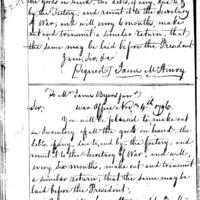 the goods in hand, the debts, if any, due &c
by the Factory, and remit it to the Secretary
of War, and will every 6 months, make
out and transmit a similar return, that
the same may be laid before the President
I am, Sir, &c
Signed/ James McHenry
To Mr. James Byers
Sir, War Office Nov 4th 1796.
You will be pleased to make out
an Inventory of all the goods in hand, the
debts, if any, due, and by the factory, and
remit it to the Secretary of War; and will,
every six months, make out and transmit
a similar return, that the same may be
laid before the President.